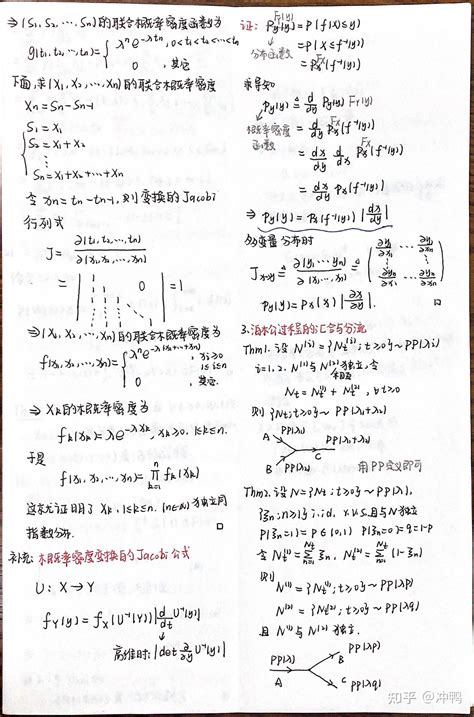 ⇒ (S₁, S₂, ⋯, Sn)的联合概率密度函数为
g(t₁, t₂, ⋯, tn) = { λⁿe^{-λtn}, 0<t₁<t₂<⋯<tn
0 , 其它
下面,求(X₁, X₂, ⋯, Xn)的联合概率密度
Xn = Sn - Sn-1
{ S₁ = X₁
S₂ = X₁ + X₂
⋮
Sn = X₁ + X₂ + ⋯ + Xn
令 xn = tn - tn-1, 则变换的Jacobi
行列式
J = ∂(t₁, t₂, ⋯, tn) / ∂(x₁, x₂, ⋯, xn)
= | 1 0 ⋮ 1 ⋯ 1 | = 1
⇒ (X₁, X₂, ⋯, Xn)的联合概率密度为
f(x₁, x₂, ⋯, xn) = { λⁿe^{-λ(x₁+x₂+⋯+xn)} , xi≥0 1≤i≤n
0 , 其它
⇒ Xk的概率密度为
fk(xk) = λe^{-λxk}, xk≥0, 1≤k≤n.
于是
f(x₁, x₂, ⋯, xn) = ∏_{k=1}^{n} fk(xk)
这就证明了 Xk, 1≤k≤n, (n∈N) 独立同
指数分布. □
补充: 概率密度变换的Jacobi公式
U: X → Y
fY(y) = fX(U⁻¹(y)) |d/dy U⁻¹(y)|
高维时: |det ∂/∂y U⁻¹(y)|
证: Fy(y)
Py(y) = P(f(x)≤y)
分布函数 = P(X≤f⁻¹(y))
Fx
= Px(f⁻¹(y))
求导知
Py(y) ≜ d/dy Py(y) Fy(y)
概率密度函数 = d/dy Px(f⁻¹(y)) Fx
= dx/dy d/dx Px(f⁻¹(y)) Fx
= dx/dy Px(f⁻¹(y))
⇒ Py(y) = Px(f⁻¹(y)) |dx/dy|
多变量分布时
Jx→y ≜ ∂(y₁ ⋯ yn) / ∂(x₁, ⋯, xn) ≜ ( ∂y₁/∂x₁ ⋯ ∂y₁/∂xn ⋮ ⋮ ∂yn/∂x₁ ⋯ ∂yn/∂xn )
Py(y) = Px(x) |∂x/∂y|. □
3. 泊松过程的汇合与分流
Thm1. 设 N⁽ⁱ⁾ = {Nt⁽ⁱ⁾; t≥0} ~ PP(λi)
i=1,2. N⁽¹⁾与N⁽²⁾独立, 令
Nt = Nt⁽¹⁾ + Nt⁽²⁾, ∀t≥0
则 {Nt; t≥0} ~ PP(λ₁+λ₂)
A PP(λ₁)
PP(λ₁+λ₂)
B C
PP(λ₂) 用PP定义即可
Thm2. 设 N = {Nt; t≥0} ~ PP(λ),
{ξn; n≥1} i.i.d. r.v.s 且与N独立
P(ξn=1) = p ∈ (0,1) P(ξn=0) = q = 1-p
令 Nt⁽¹⁾ = Σ_{n=1}^{Nt} ξn, Nt⁽²⁾ = Σ_{n=1}^{Nt} (1-ξn)
则
N⁽¹⁾ = {Nt⁽¹⁾; t≥0} ~ PP(λp)
N⁽²⁾ = {Nt⁽²⁾; t≥0} ~ PP(λq)
且 N⁽¹⁾ 与 N⁽²⁾ 独立.
PP(λp)
PP(λ) B
A C
PP(λq)
知乎 @冲鸭